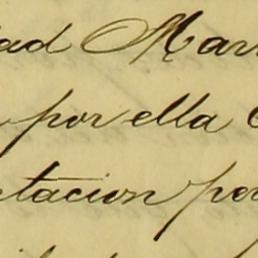 ad Mar
por ella
tacion por